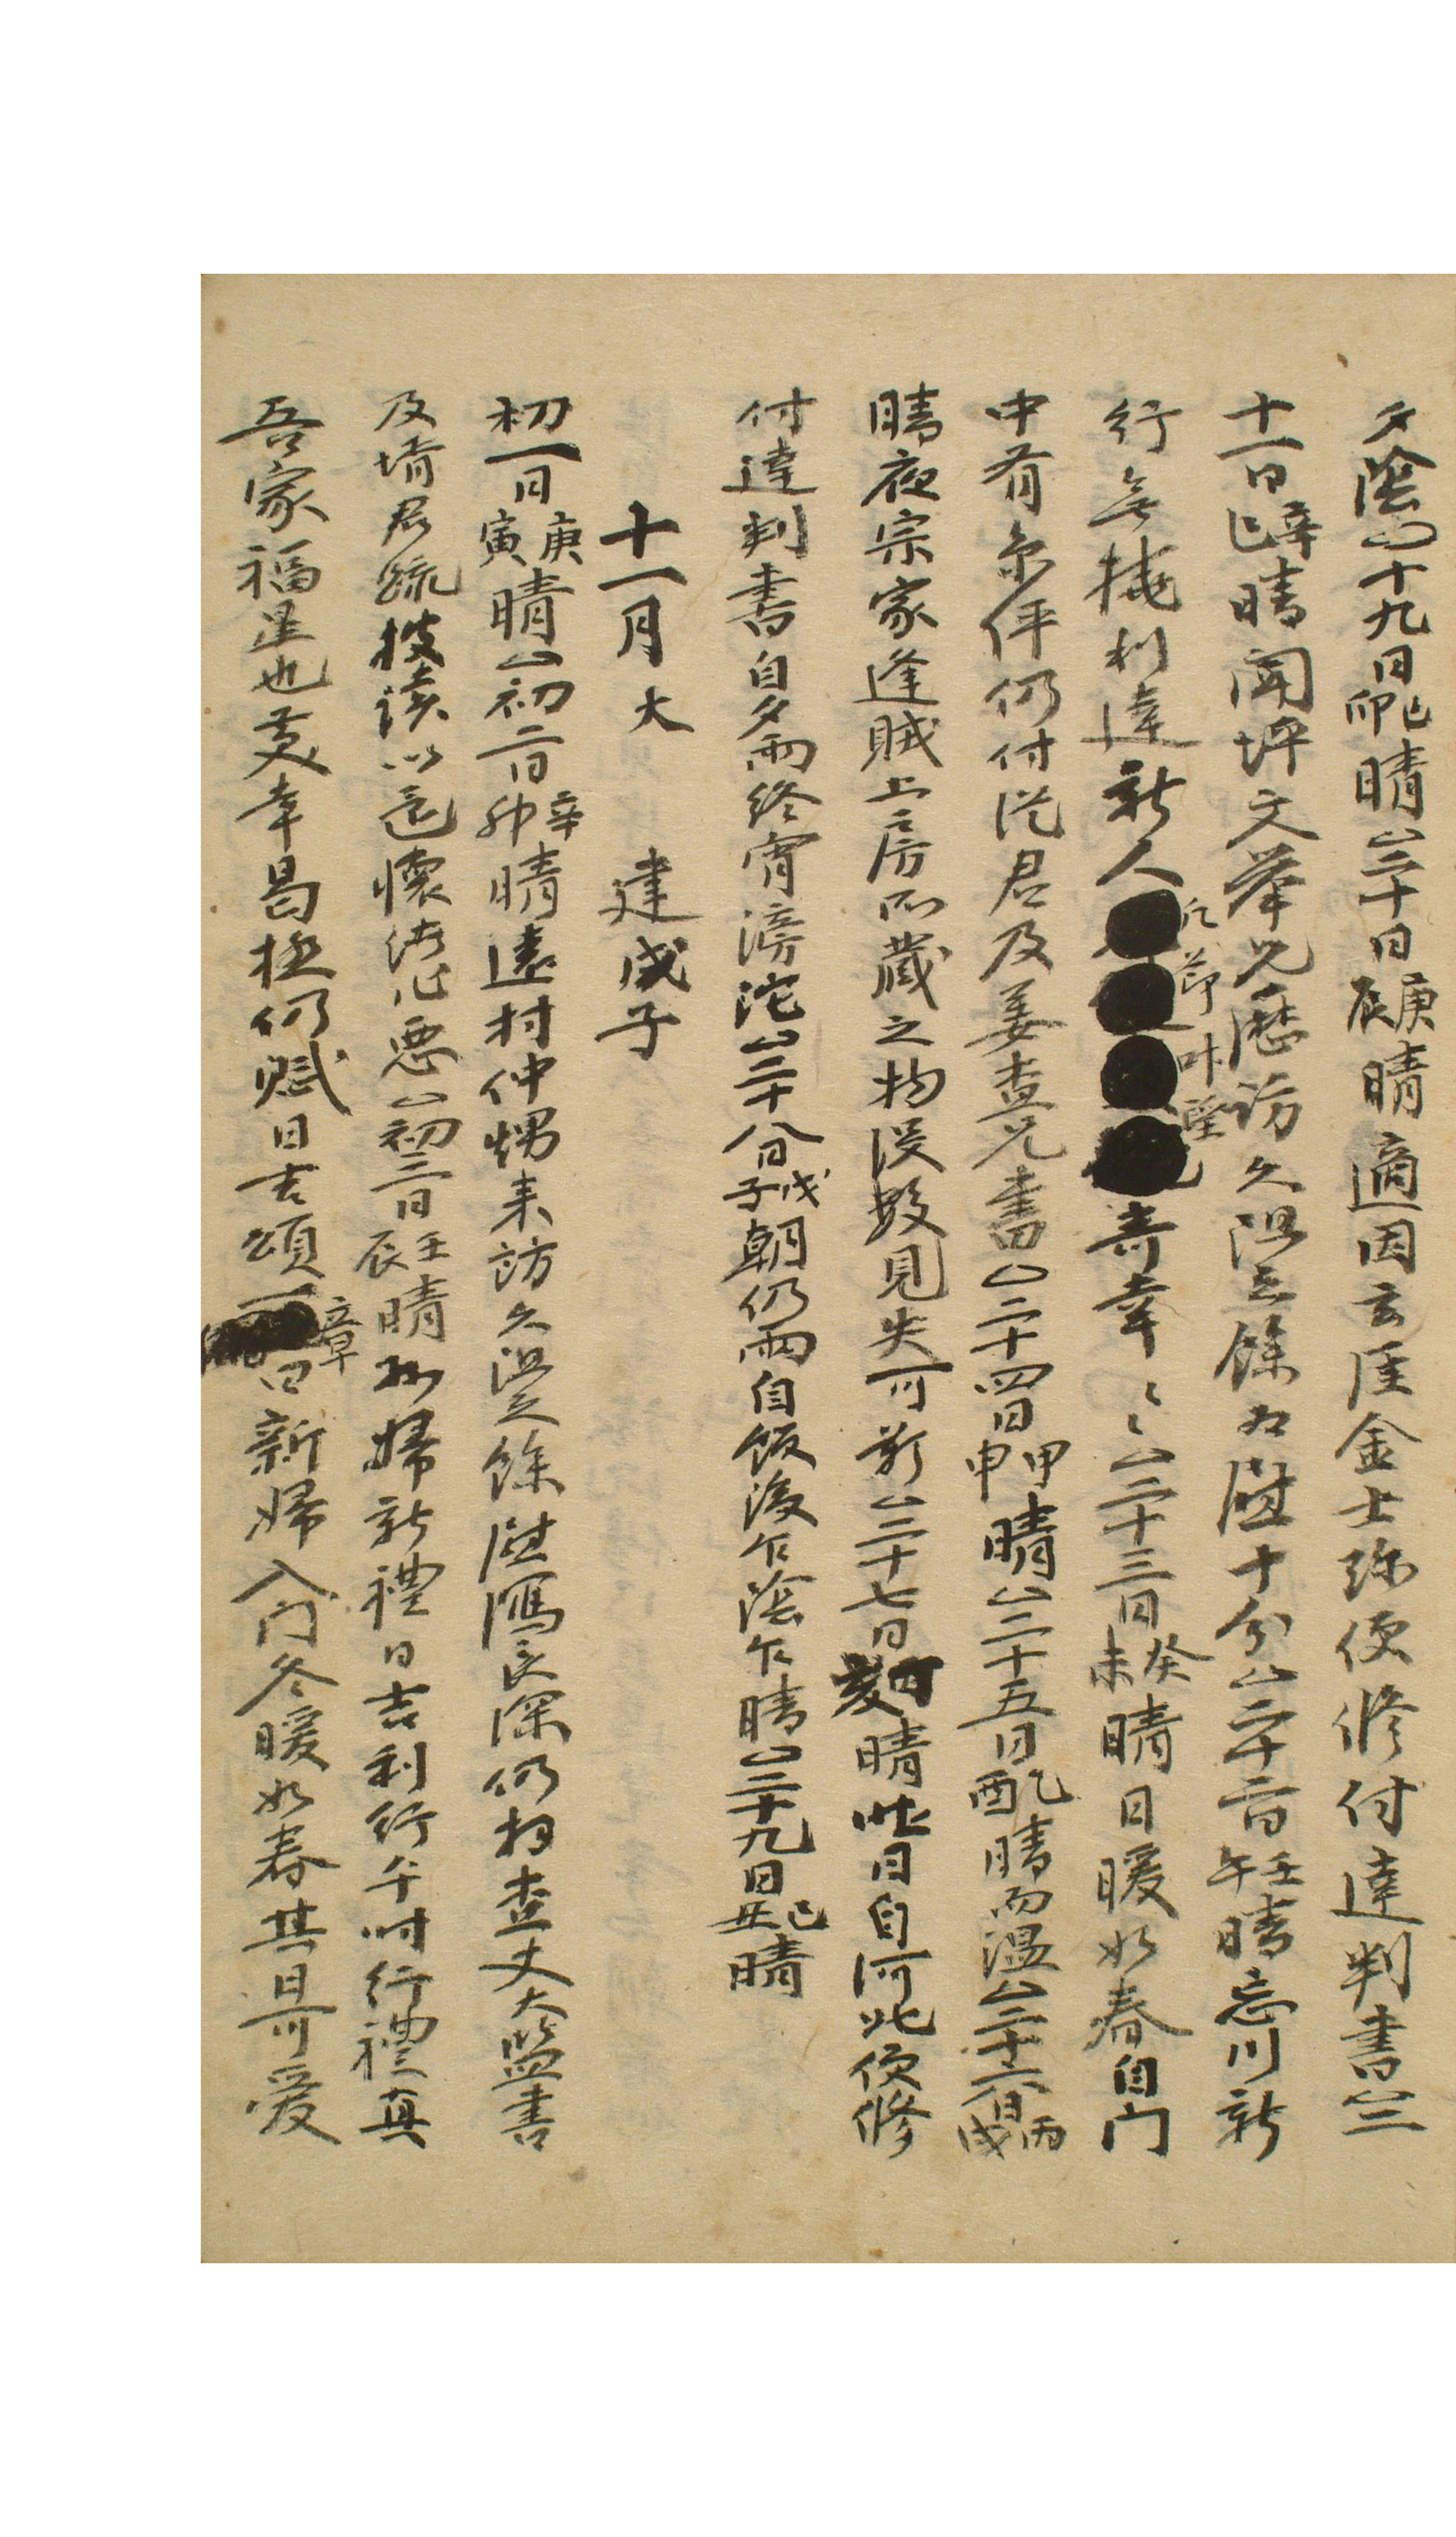 夕陰○十九日己卯晴○二十日庚辰晴適因云厓金士珎便修付達判書○二
十一日辛巳晴聞坪文擧兄歷訪久阻之餘為慰十分○二十二日壬午晴忘川新
行無撓利達新人凡節叶望奇幸〻〻○二十三日癸未晴日暖如春自門
中有京伻仍付從君及姜査兄書○二十四日甲申晴○二十五日乙酉晴而溫○二十六日丙戌
晴夜宗家逢賊上房所藏之物沒數見失可歎○二十七日丁亥晴昨日自河北便修
付達判書自夕雨終宵滂沱○二十八日戊子朝仍雨自飯後乍陰乍晴○二十九日己丑晴
十一月大 建戊子
初一日庚寅晴○初二日辛卯晴遠村仲甥來訪久阻之餘慰瀉良深仍將査丈大監書
及壻君疏披讀以還懷緖心惡○初三日壬辰晴孫婦新禮日吉利行午时行禮真
吾家福星也慶幸曷極仍賦日吉頌一章曰新婦入门冬暖如春其日哥爱